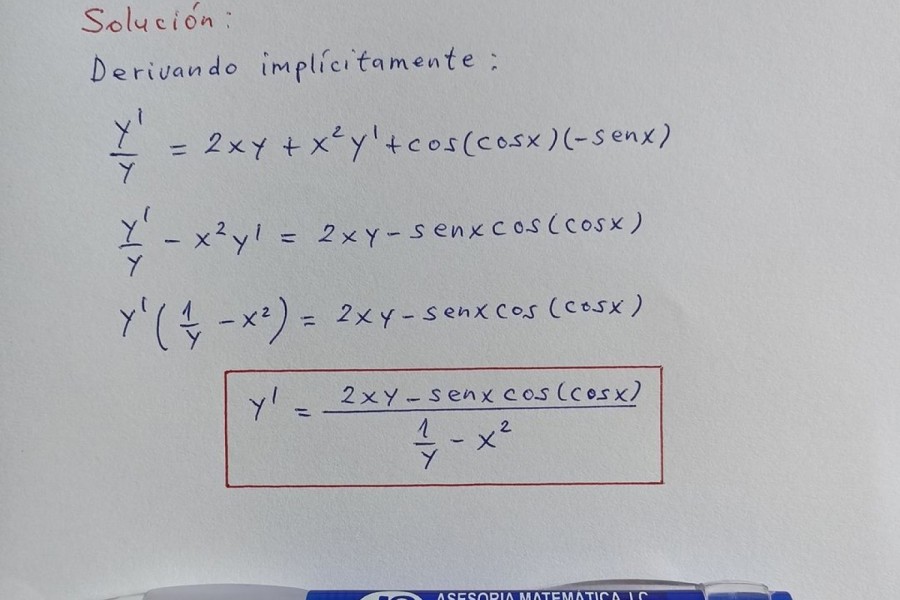 Solución:
Derivando implícitamente:
y'/y = 2xy + x²y' + cos(cosx)(-senx)
y'/y - x²y' = 2xy - senx cos(cosx)
y'(1/y - x²) = 2xy - senx cos(cosx)
y' = 2xy - senx cos(cosx) / 1/y - x²
ASESORIA MATEMATICA